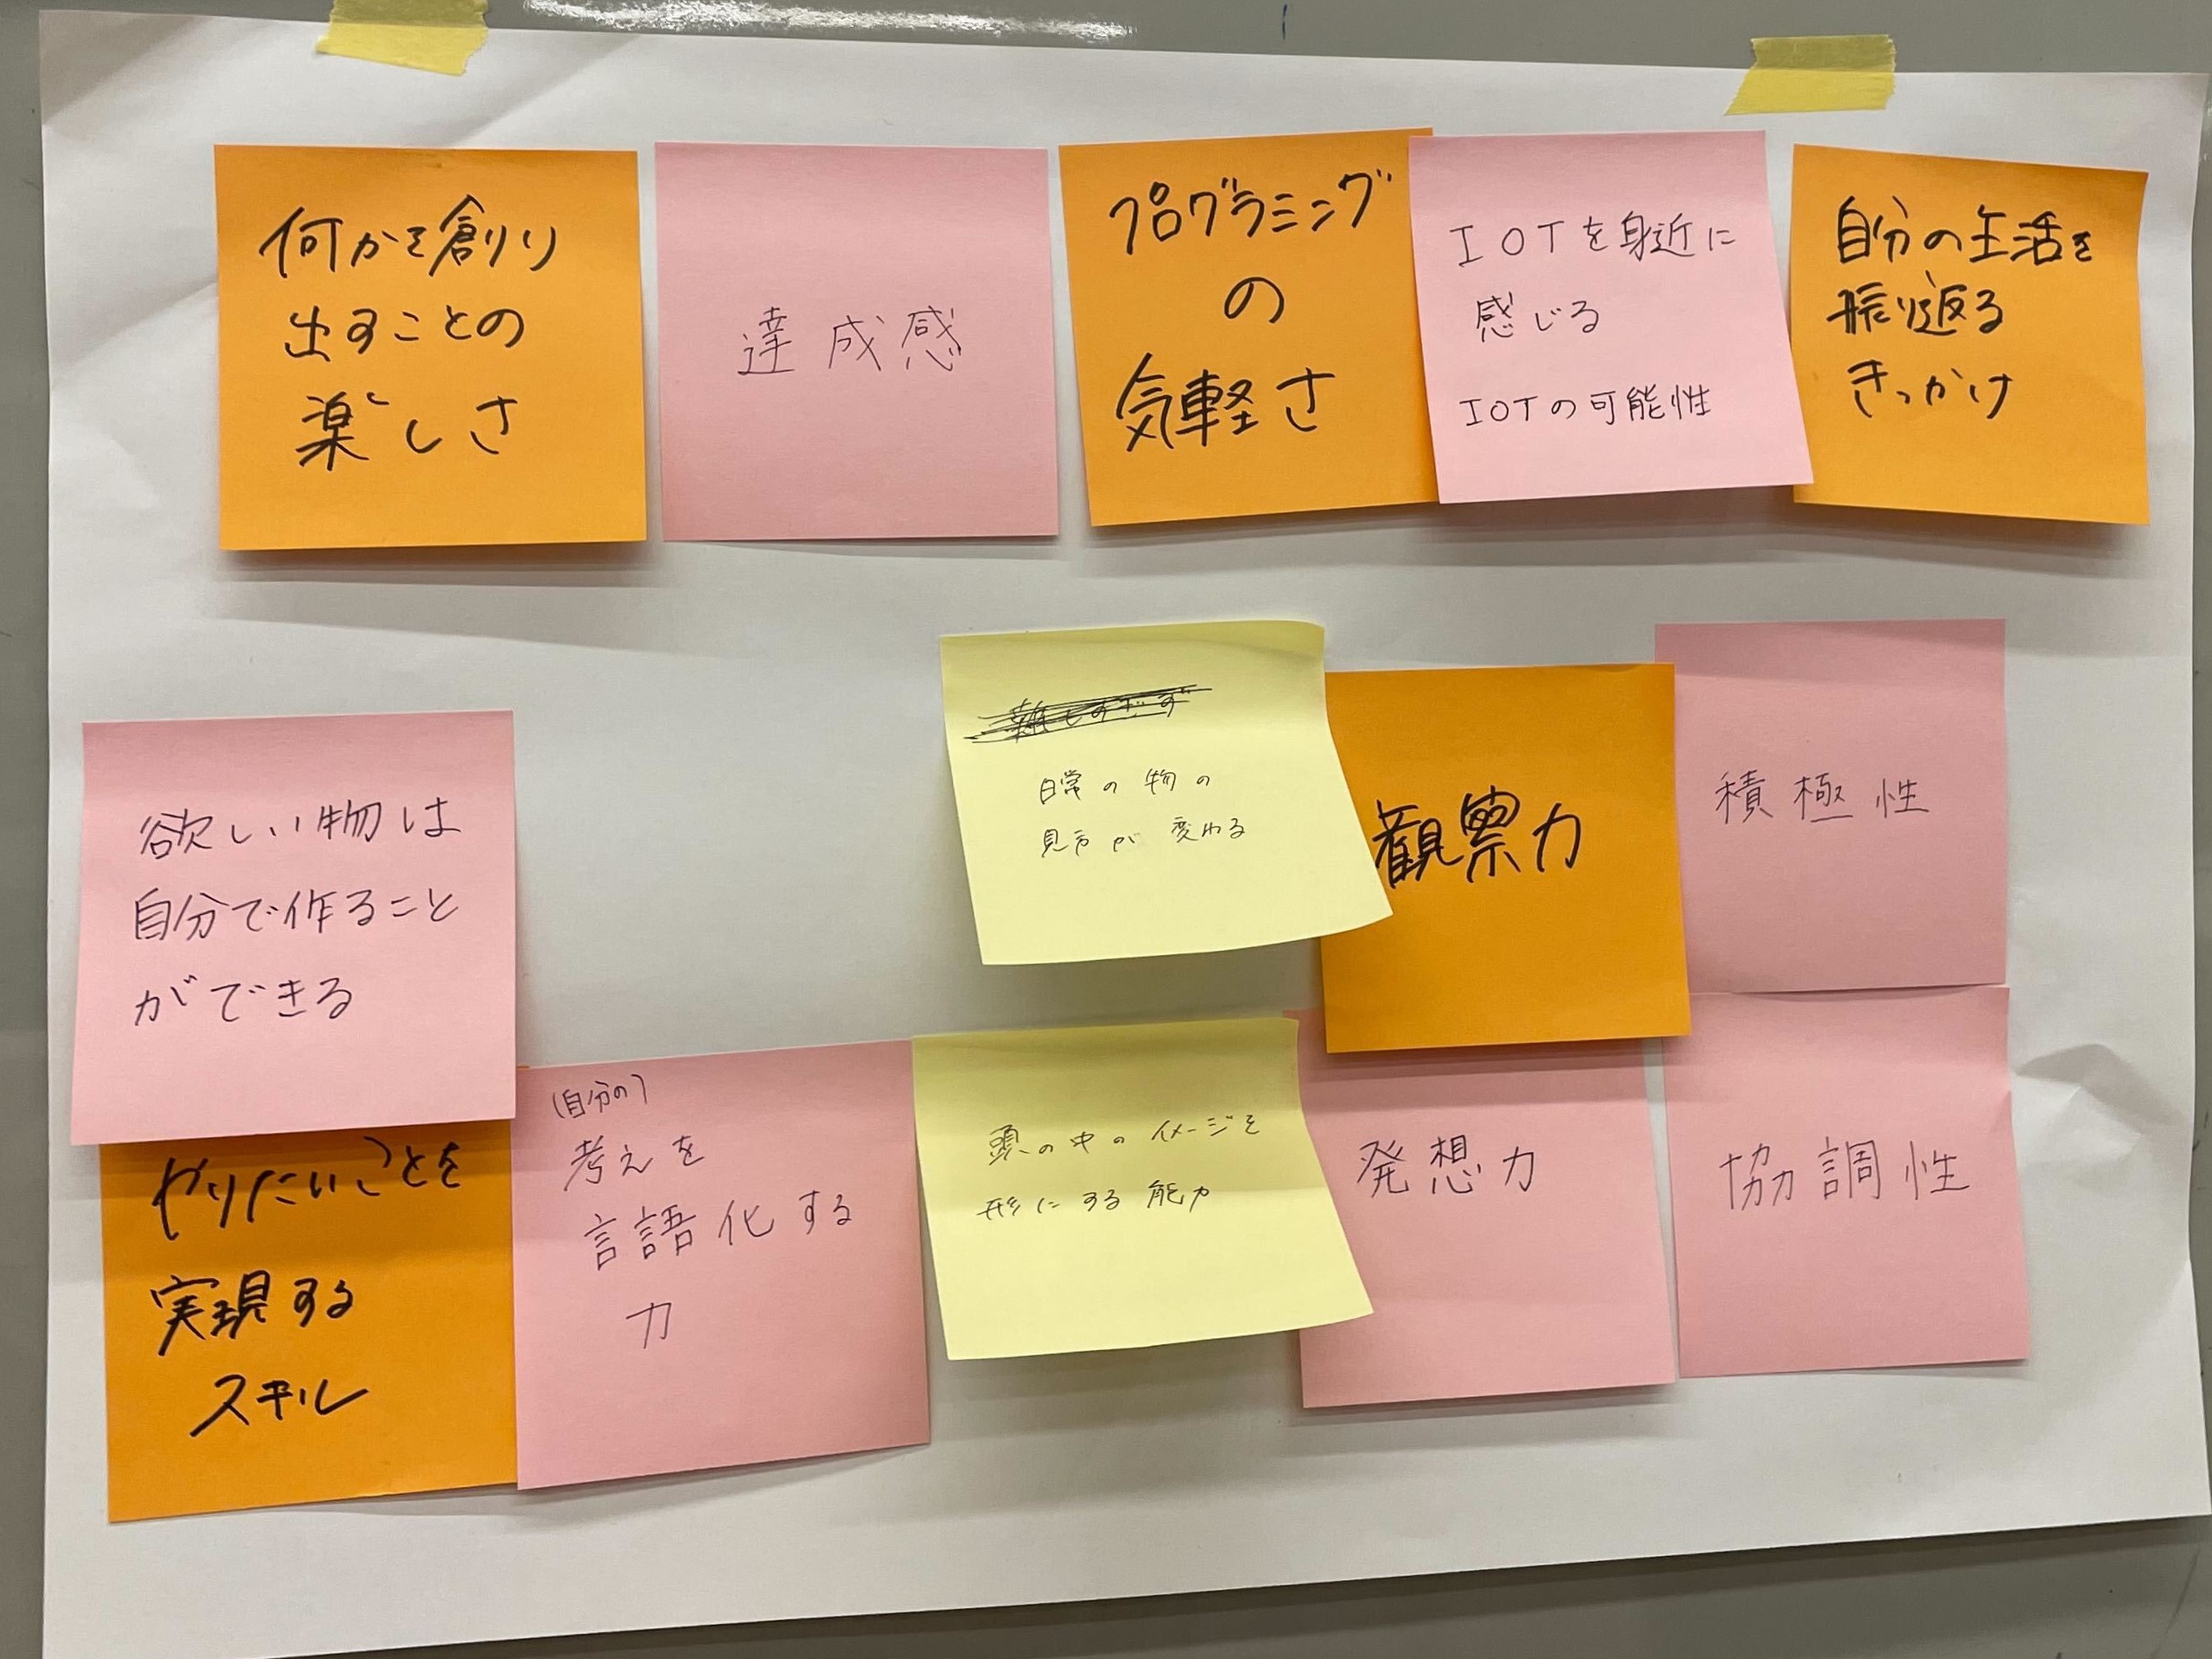 何かを創り
出すことの
楽しさ
達成感
プログラミング
の
気軽さ
IOTを身近に
感じる
IOTの可能性
自分の生活を
振り返る
きっかけ
欲しい物は
自分で作ること
ができる
日常の物の
見方が変わる
観察力
積極性
やりたいことを
実現する
スキル
(自分の)
考えを
言語化する
力
頭の中のイメージを
形にする能力
発想力
協調性